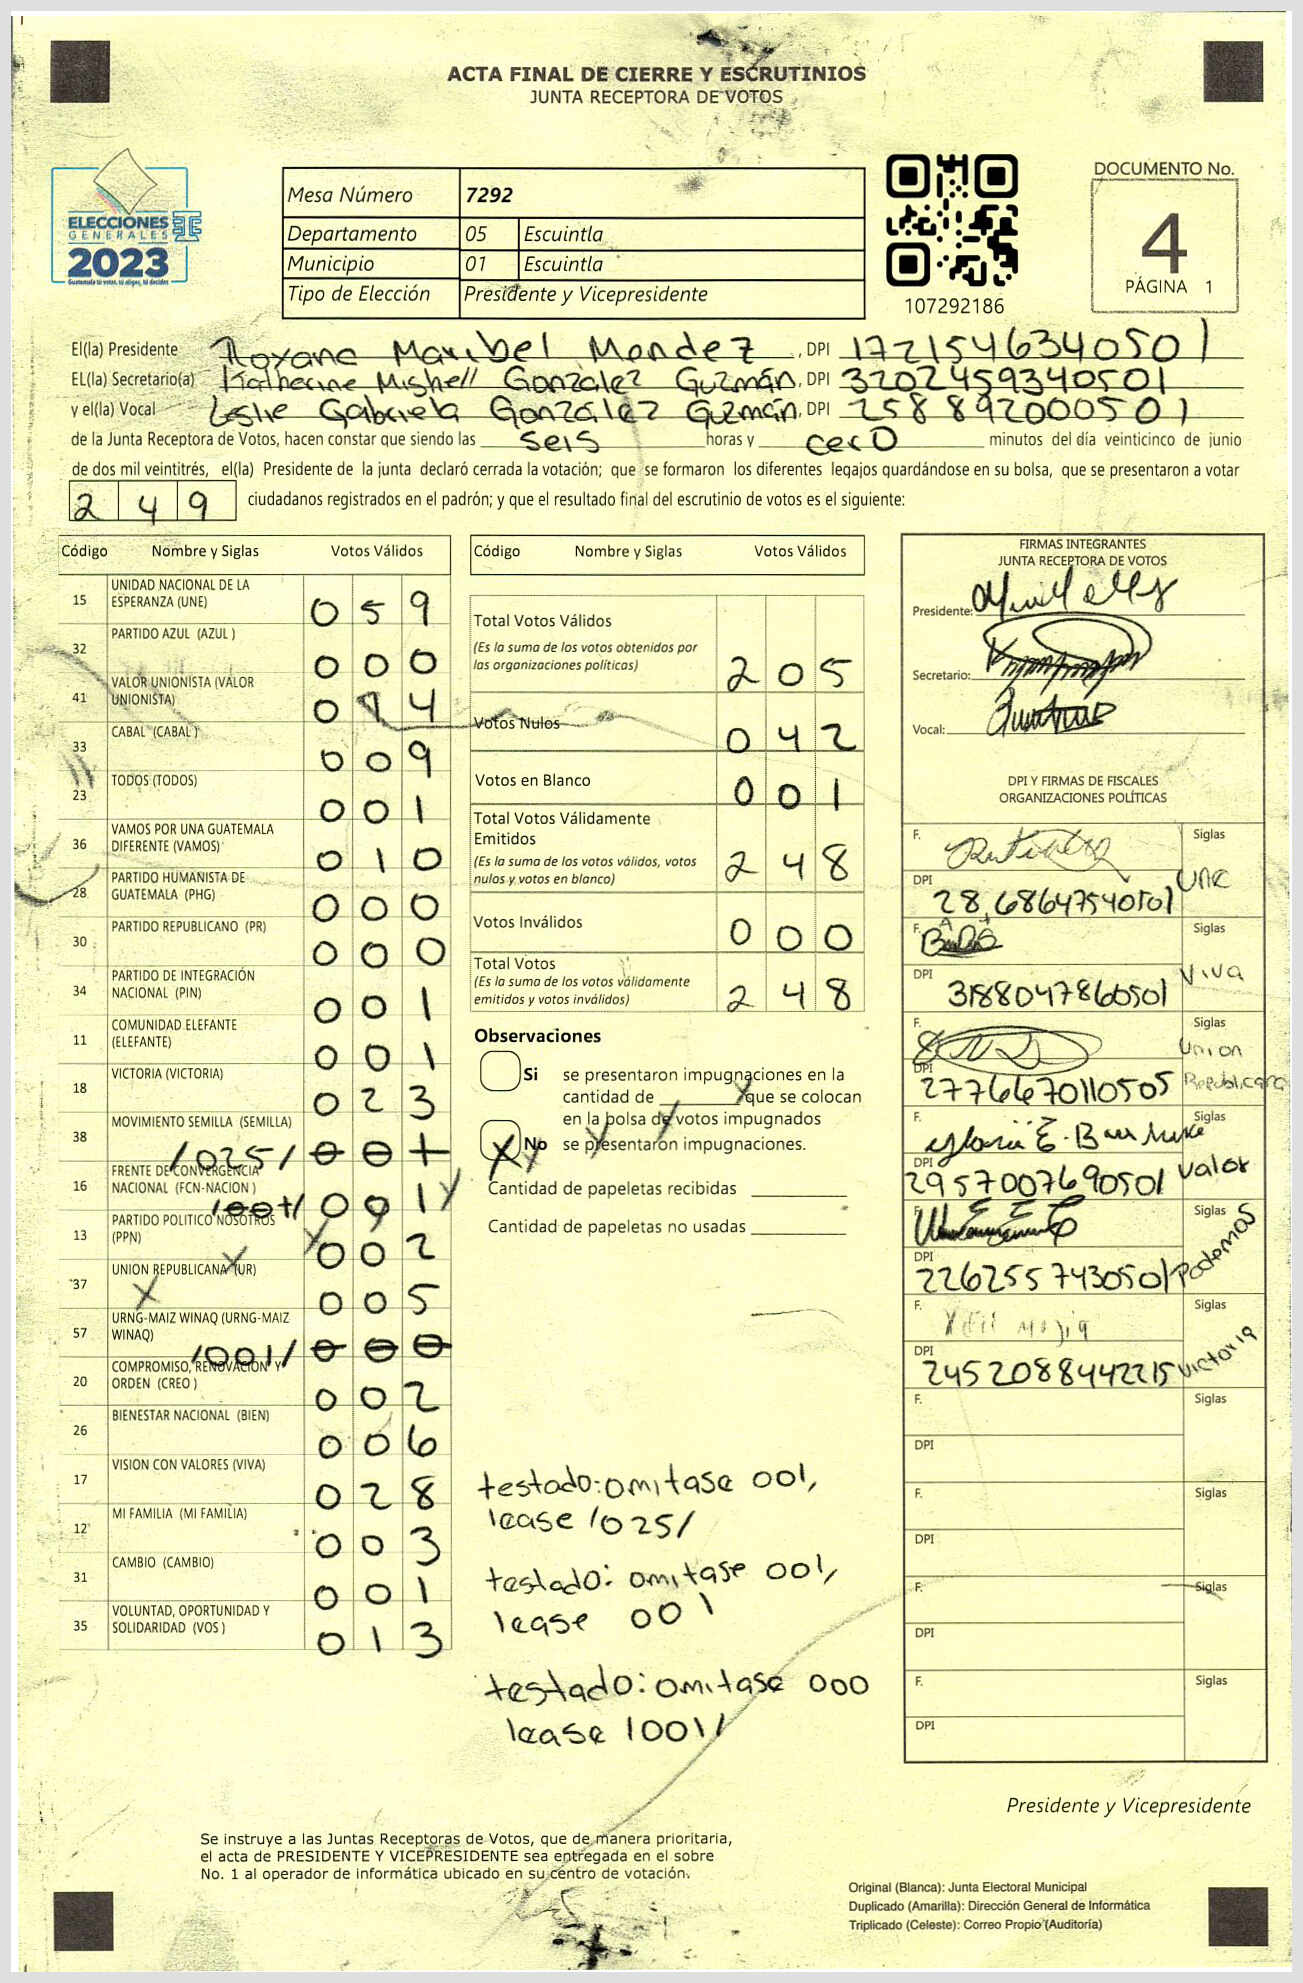 ACTA FINAL DE CIERRE Y ESCRUTINIOS
JUNTA RECEPTORA DE VOTOS
ELECCIONES
GENERALES
2023
Guatemala tú votas, tú eliges, tú decides
Mesa Número 7292
Departamento 05 Escuintla
Municipio 01 Escuintla
Tipo de Elección Presidente y Vicepresidente
107292186
DOCUMENTO No.
4
PÁGINA 1
El(la) Presidente Roxana Maribel Mendez, DPI 1721546340501
EL(la) Secretario(a) Katherine Mishell Gonzalez Guzmán, DPI 3202459340501
y el(la) Vocal Leslie Gabriela González Guzmán, DPI 2588920000501
de la Junta Receptora de Votos, hacen constar que siendo las seis horas y cero minutos del día veinticinco de junio
de dos mil veintitrés, el(la) Presidente de la junta declaró cerrada la votación; que se formaron los diferentes legajos quardándose en su bolsa, que se presentaron a votar
249 ciudadanos registrados en el padrón; y que el resultado final del escrutinio de votos es el siguiente:
Código Nombre y Siglas Votos Válidos
15 UNIDAD NACIONAL DE LA ESPERANZA (UNE) 059
32 PARTIDO AZUL (AZUL ) 000
41 VALOR UNIONISTA (VALOR UNIONISTA) 014
33 CABAL (CABAL ) 009
23 TODOS (TODOS) 001
36 VAMOS POR UNA GUATEMALA DIFERENTE (VAMOS) 010
28 PARTIDO HUMANISTA DE GUATEMALA (PHG) 000
30 PARTIDO REPUBLICANO (PR) 000
34 PARTIDO DE INTEGRACIÓN NACIONAL (PIN) 001
11 COMUNIDAD ELEFANTE (ELEFANTE) 001
18 VICTORIA (VICTORIA) 023
38 MOVIMIENTO SEMILLA (SEMILLA) /025/ 001
16 FRENTE DE CONVERGENCIA NACIONAL (FCN-NACION ) /001/ 001
13 PARTIDO POLITICO NOSOTROS (PPN) 002
37 UNION REPUBLICANA (UR) 005
57 URNG-MAIZ WINAQ (URNG-MAIZ WINAQ) /001/ 000
20 COMPROMISO, RENOVACION Y ORDEN (CREO ) 002
26 BIENESTAR NACIONAL (BIEN) 006
17 VISION CON VALORES (VIVA) 028
12 MI FAMILIA (MI FAMILIA) 003
31 CAMBIO (CAMBIO) 001
35 VOLUNTAD, OPORTUNIDAD Y SOLIDARIDAD (VOS ) 013
Código Nombre y Siglas Votos Válidos
Total Votos Válidos 205
(Es la suma de los votos obtenidos por
las organizaciones políticas)
Votos Nulos 042
Votos en Blanco 001
Total Votos Válidamente
Emitidos 248
(Es la suma de los votos válidos, votos
nulos y votos en blanco)
Votos Inválidos 000
Total Votos 248
(Es la suma de los votos válidamente
emitidos y votos inválidos)
Observaciones
Si se presentaron impugnaciones en la
cantidad de que se colocan
en la bolsa de votos impugnados
X No se presentaron impugnaciones.
Cantidad de papeletas recibidas
Cantidad de papeletas no usadas
testado: omitase 001,
lease /025/
testado: omitase 001,
lease 001
testado: omitase 000
lease /001/
FIRMAS INTEGRANTES
JUNTA RECEPTORA DE VOTOS
Presidente:
Secretario:
Vocal:
DPI Y FIRMAS DE FISCALES
ORGANIZACIONES POLÍTICAS
F. Siglas UNE
DPI 2868647540501
F. Siglas Viva
DPI 3188047860501
F. Siglas Union Republicana
DPI 2776670110505
F. Siglas Valor
DPI 2957007690501
F. Siglas Podemos
DPI 2262557430501
F. Siglas Victoria
DPI 2452088442215
F. Siglas
DPI
F. Siglas
DPI
F. Siglas
DPI
F. Siglas
DPI
Presidente y Vicepresidente
Se instruye a las Juntas Receptoras de Votos, que de manera prioritaria,
el acta de PRESIDENTE Y VICEPRESIDENTE sea entregada en el sobre
No. 1 al operador de informática ubicado en su centro de votación.
Original (Blanca): Junta Electoral Municipal
Duplicado (Amarilla): Dirección General de Informática
Triplicado (Celeste): Correo Propio (Auditoría)